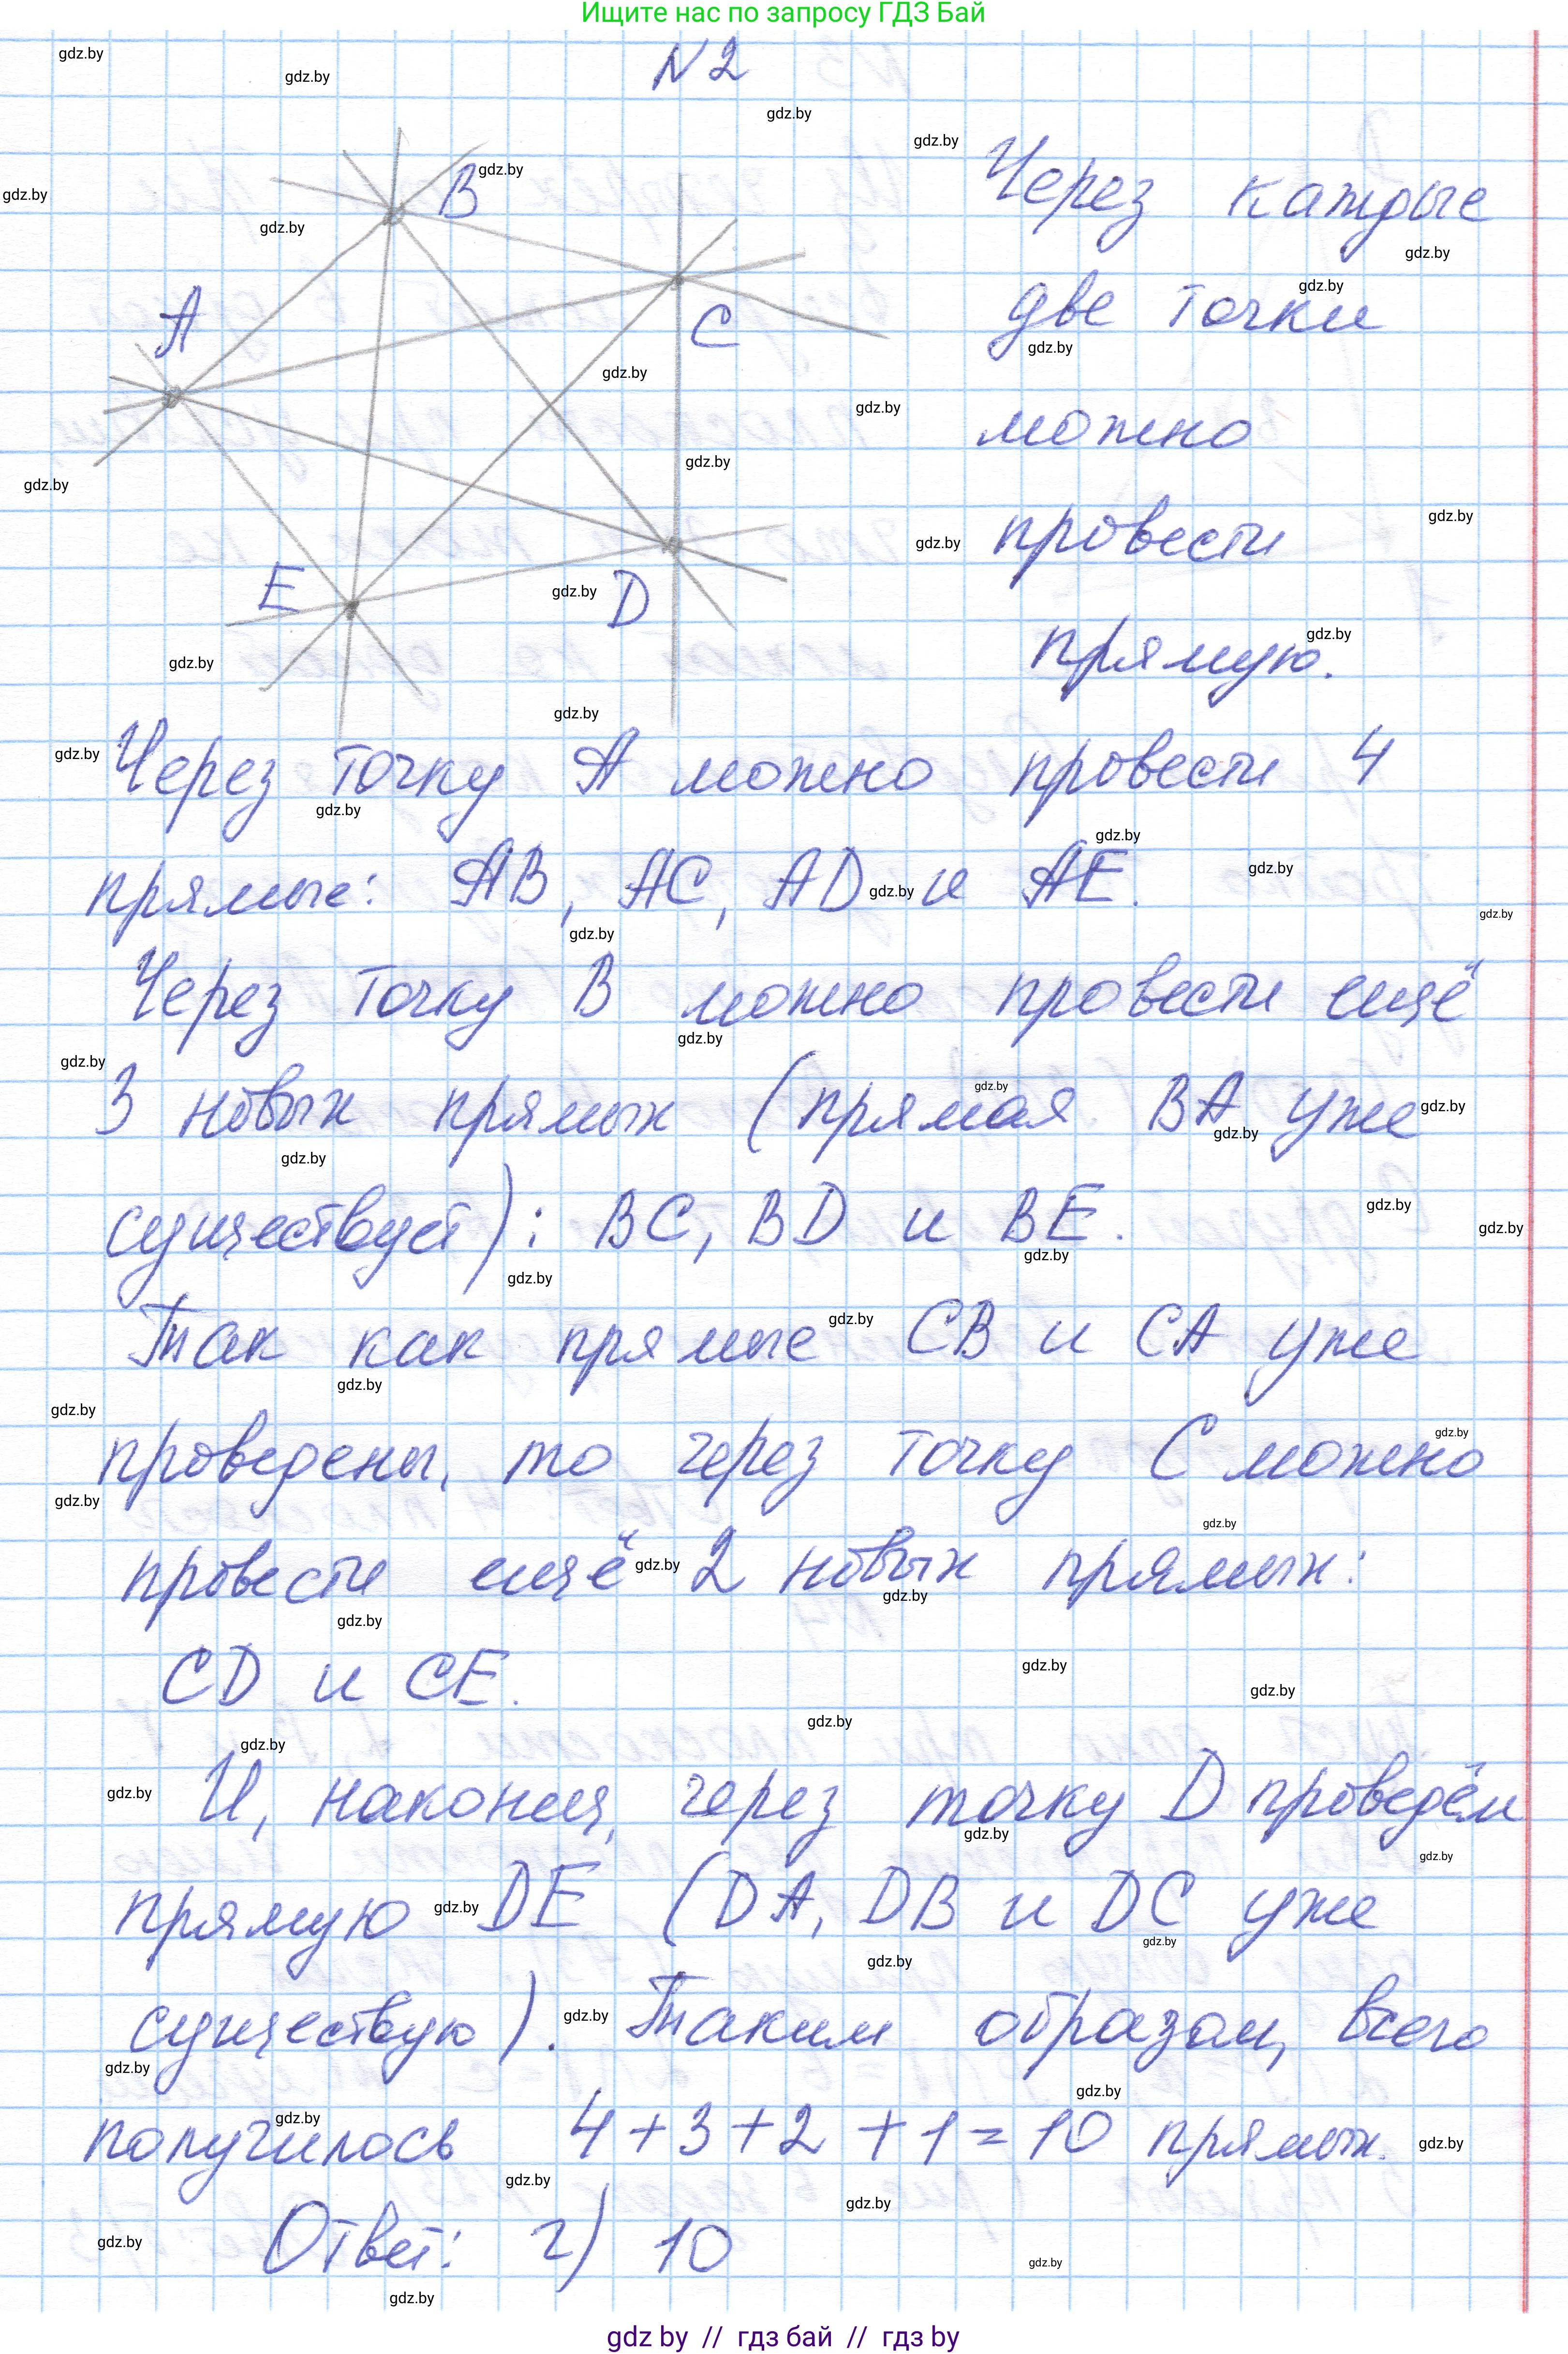 Ищите нас по запросу ГДЗ Бай
N2
B
A
C
E
D
Через каждые
две точки
можно
провести
прямую.
Через точку A можно провести 4
прямые: AB, AC, AD и AE.
Через точку B можно провести ещё
3 новых прямых (прямая BA уже
существует): BC, BD и BE.
Так как прямые CB и CA уже
проведены, то через точку C можно
провести ещё 2 новых прямых:
CD и CE.
И, наконец, через точку D проведём
прямую DE (DA, DB и DC уже
существую). Таким образом, всего
получилось 4+3+2+1=10 прямых.
Ответ: г) 10
gdz by // гдз бай // гдз by